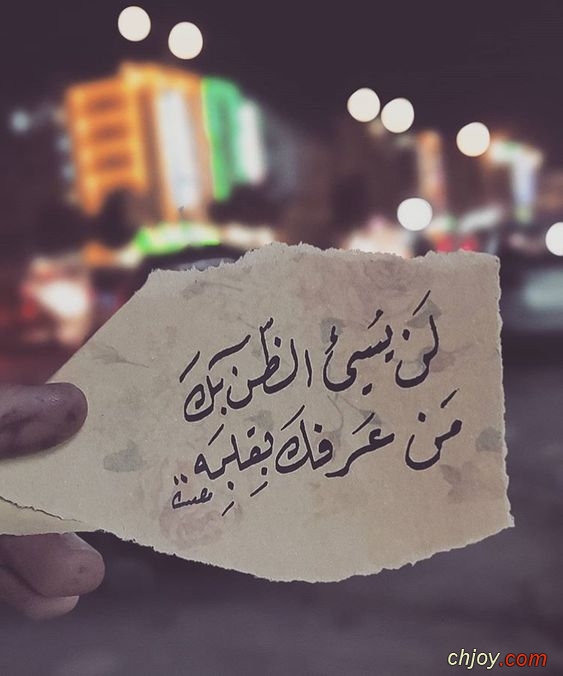 لَن يُسَيئَ الظّن بَكَ
مَن عَرفكَ بِقلبِه..
chjoy.com